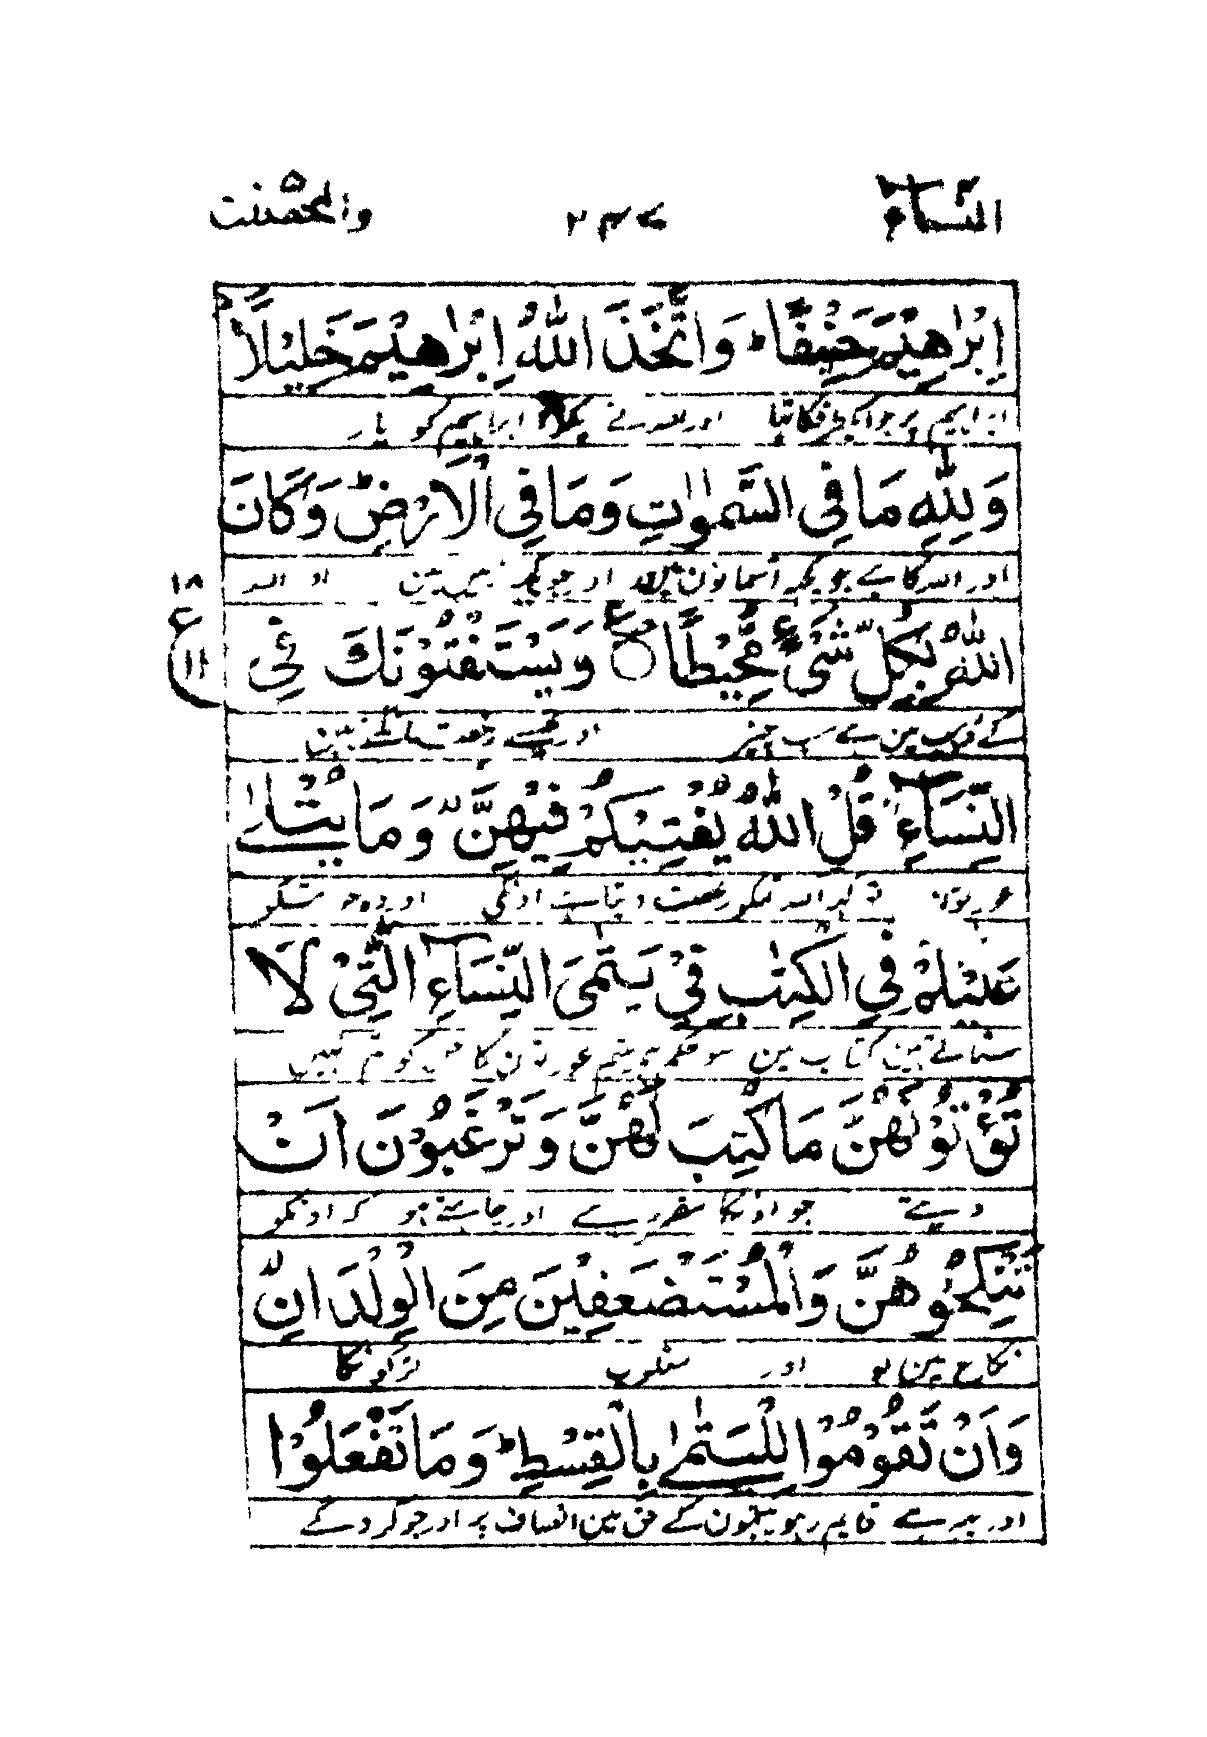 النسآء
والمحصنت
اِبْرٰهِيْمَ حَنِيْفًا ؕ وَاتَّخَذَ اللّٰهُ اِبْرٰهِيْمَ خَلِيْلًا
ابراہیم پر جو ایک طرفکا تہا اور اللہ نے پکڑا ابراہیم کو یار
وَلِلّٰهِ مَا فِى السَّمٰوٰتِ وَمَا فِى الْاَرْضِؕ وَكَانَ
اور اللہ کا ہے جو کچہ آسمانون مین اور جو کچہ زمین مین اور اللہ
اللّٰهُ بِكُلِّ شَىْءٍ مُّحِيْطًا ۝ وَيَسْتَفْتُوْنَكَ فِى
١٨ ع ١١
کے ڈہب مین ہے سب چیز اور تجہسے رخصت مانگتے ہین
النِّسَآءِؕ قُلِ اللّٰهُ يُفْتِيْكُمْ فِيْهِنَّ ۙ وَمَا يُتْلٰى
عورتونکی تو کہہ اللہ تمکو رخصت دیتا ہے اونکی اور وہ جو تمکو
عَلَيْكُمْ فِى الْكِتٰبِ فِىْ يَتٰمَى النِّسَآءِ الّٰتِىْ لَا
سناتے ہین کتاب مین سو حکم ہے یتیم عورتون کا جنکو تم نہین
تُؤْتُوْنَهُنَّ مَا كُتِبَ لَهُنَّ وَتَرْغَبُوْنَ اَنْ
دیتے جو اونکا مقرر ہے اور چاہتے ہو کہ اونکو
تَنْكِحُوْهُنَّ وَالْمُسْتَضْعَفِيْنَ مِنَ الْوِلْدَانِ ۙ
نکاح مین لو اور مغلوب لڑکونکا
وَاَنْ تَقُوْمُوْا لِلْيَتٰمٰى بِالْقِسْطِؕ وَمَا تَفْعَلُوْا
اور یہ ہے قایم رہو یتیمون کے حق مین انصاف پر اور جو کرو گے